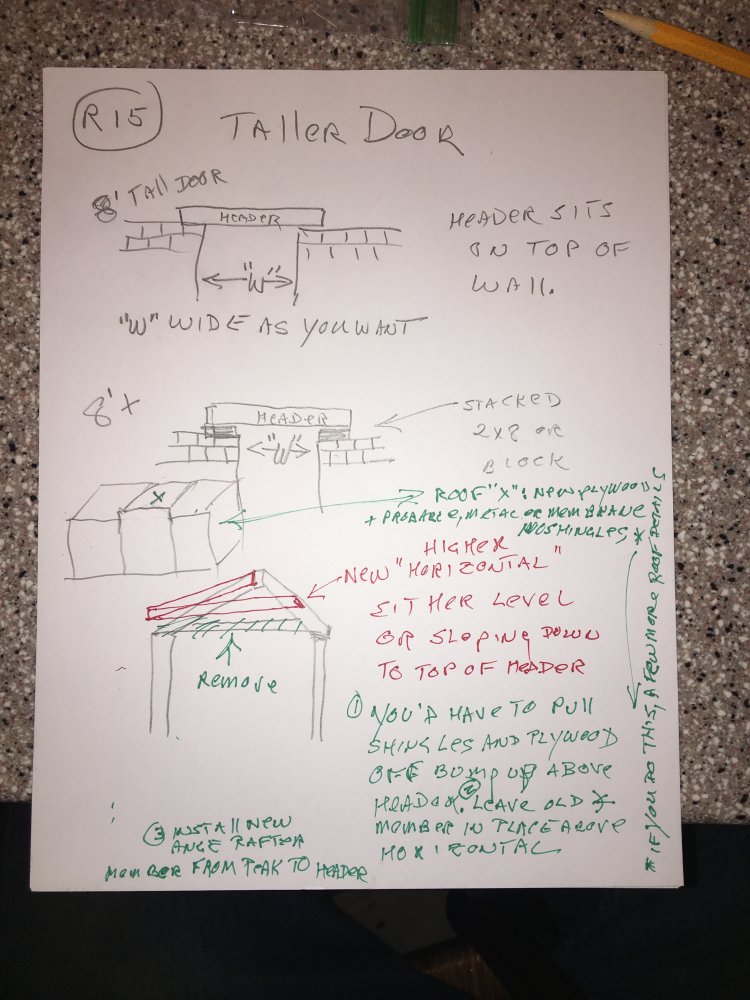 R15
TALLER DOOR
8' TALL DOOR
HEADER
HEADER SITS
ON TOP OF
WALL.
"W"
"W" WIDE AS YOU WANT
8' X
HEADER
"W"
STACKED
2X8 OR
BLOCK
X
ROOF "X": NEW PLYWOOD
+ PROBABLE, METAL OR MEMBRANE
NO SHINGLES *
HIGHER
NEW "HORIZONTAL"
EITHER LEVEL
OR SLOPING DOWN
TO TOP OF HEADER
REMOVE
① YOU'D HAVE TO PULL
SHINGLES AND PLYWOOD
OFF BUMP UP ABOVE
HEADER. ② LEAVE OLD
MEMBER IN PLACE ABOVE
HORIZONTAL
③ INSTALL NEW
RAFTER
MEMBER FROM PEAK TO HEADER
* IF YOU DO THIS, A FEW MORE ROOF DETAILS